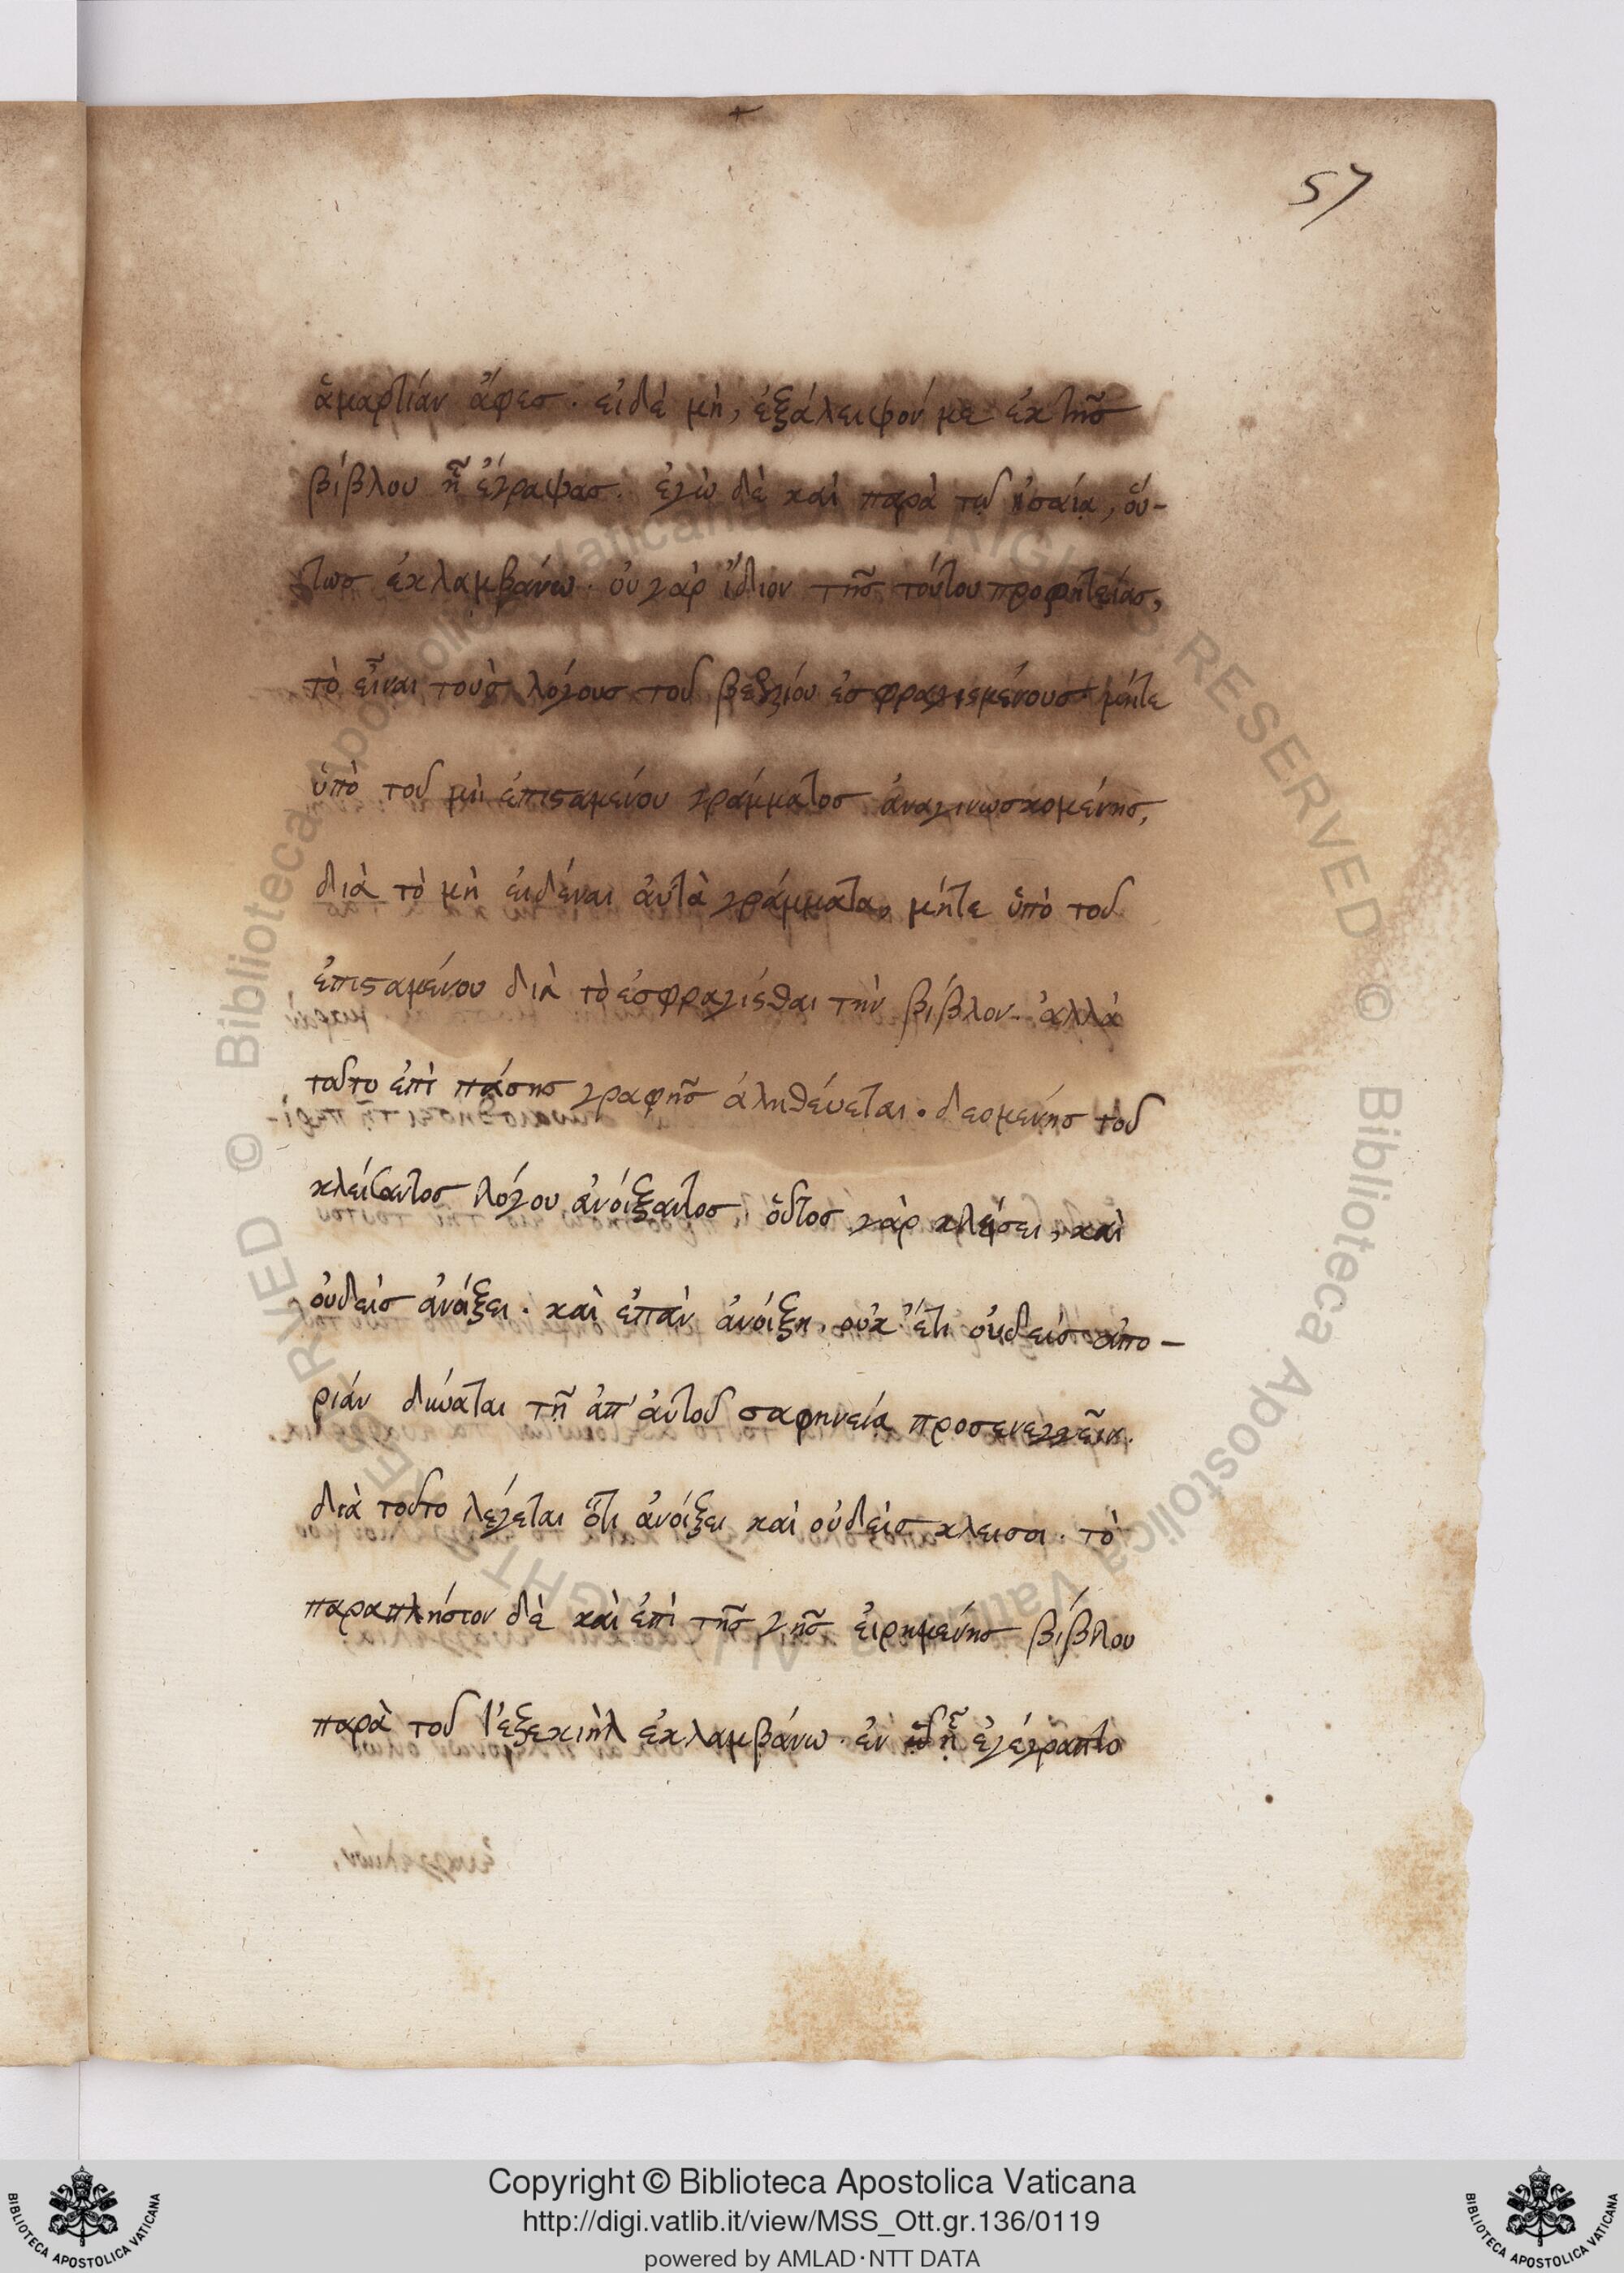 57
ἁμαρτίαν ἄφες. εἰδὲ μὴ, ἐξάλειψόν με ἐκ τῆς
βίβλου ἧ ἔγραψας. ἐγὼ δὲ καὶ παρὰ τῷ ἠσαΐᾳ, οὕ-
τως ἐκλαμβάνω. οὐ γὰρ ἴδιον τῆς τούτου προφητείας,
τὸ εἶναι τοὺς λόγους τοῦ βιβλίου ἐσφραγισμένους μήτε
ὑπὸ τοῦ μὴ ἐπισταμένου γράμματος ἀναγινωσκομένης,
διὰ τὸ μὴ εἰδέναι αὐτὰ γράμματα, μήτε ὑπὸ τοῦ
ἐπισταμένου διὰ τὸ ἐσφραγίσθαι τὴν βίβλον. ἀλλὰ
τοῦτο ἐπὶ πάσης γραφῆς ἀληθεύεται. δεομένης τοῦ
κλείσαντος λόγου ἀνοίξαντος. οὗτος γὰρ κλείσει, καὶ
οὐδεὶς ἀνοίξει. καὶ ἐπὰν ἀνοίξῃ, οὐκ ἔτι οὐδεὶς ἀπο-
ρίαν δύναται τῇ ἀπ' αὐτοῦ σαφηνείᾳ προσενεγγεῖν.
διὰ τοῦτο λέγεται ὅτι ἀνοίξει καὶ οὐδεὶς κλείσει. τὸ
παραπλήσιον δὲ καὶ ἐπὶ τῆς γῆς εἰρημένης βίβλου
παρὰ τοῦ Ἰεζεκιὴλ ἐκλαμβάνω. ἐν ᾗ ἐγέγραπτο
Copyright © Biblioteca Apostolica Vaticana
http://digi.vatlib.it/view/MSS_Ott.gr.136/0119
powered by AMLAD·NTT DATA